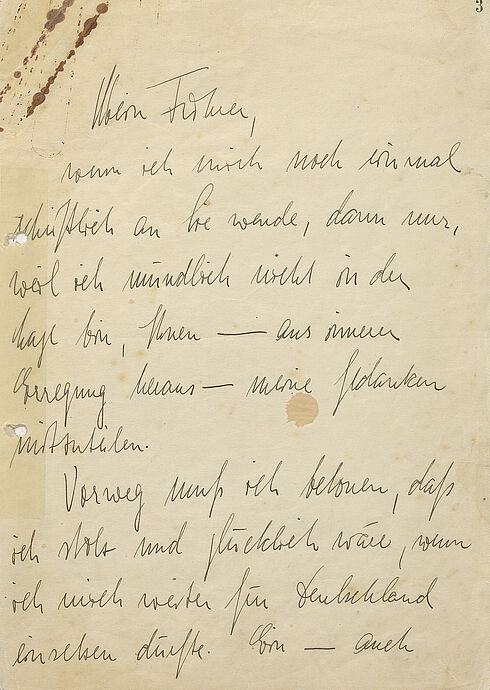 3
Mein Führer,
wenn ich mich noch einmal
schriftlich an Sie wende, dann nur,
weil ich mündlich nicht in der
Lage bin, Ihnen — aus innerer
Erregung heraus — meine Gedanken
mitzuteilen.
Vorweg muß ich betonen, daß
ich stolz und glücklich wäre, wenn
ich mich weiter für Deutschland
einsetzen dürfte. Ein — auch